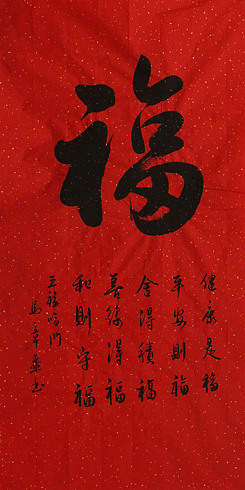 福
健康是福
平安则福
舍得积福
善缘得福
和则守福
五福临门